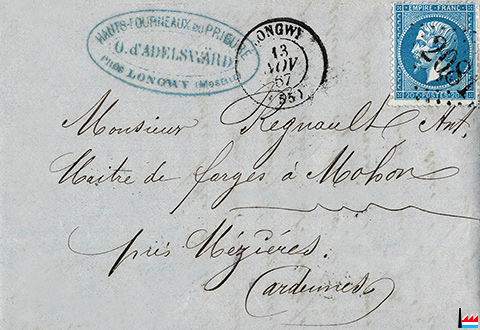 HAUTS-FOURNEAUX DU PRIEURÉ
O. d'ADELSWÄRD
PRÈS LONGWY (MOSELLE)
LONGWY
13
NOV
67
(55)
EMPIRE FRANC
Monsieur Regnault Ant.
Maitre de forges à Mohon
près Mézières.
Ardennes